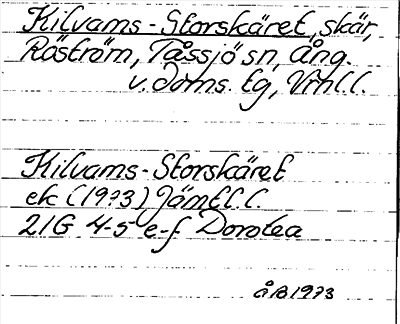 Kilvams-Storskäret, skär,
Röström, Tåssjö sn, Ång.
v. doms. tg, Vnl.l.
Kilvams-Storskäret
ek (1973) Jämtl.l.
21G 4-5 e-f Dorotea
ÅB 1973